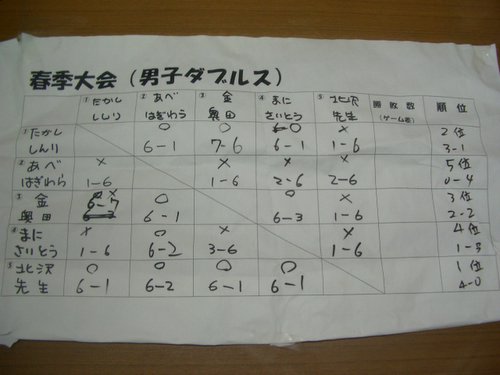 春季大会(男子ダブルス)
① たかし しんり ② あべ はぎわら ③ 金 奥田 ④ まに さいとう ⑤ 北沢 先生 勝敗数 (ゲーム差) 順位
① たかし ○ ○ ○ × 2位
しんり 6-1 7-6 6-1 1-6 3-1
② あべ × × × × 5位
はぎわら 1-6 1-6 2-6 2-6 0-4
③ 金 × ○ ○ × 3位
奥田 6-7 6-1 6-3 1-6 2-2
④ まに × ○ × × 4位
さいとう 1-6 6-2 3-6 1-6 1-3
⑤ 北沢 ○ ○ ○ ○ 1位
先生 6-1 6-2 6-1 6-1 4-0